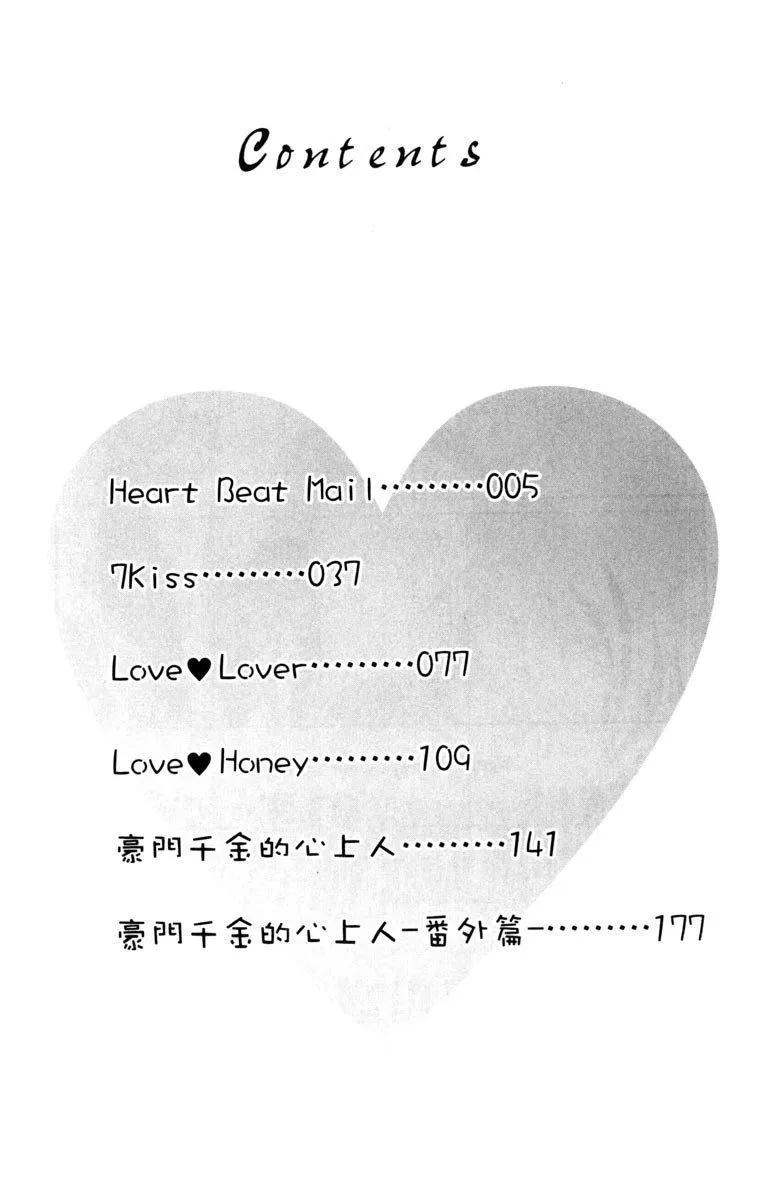 Contents
Heart Beat Mail………005
7Kiss………037
Love♥Lover………077
Love♥Honey………109
豪門千金的心上人………141
豪門千金的心上人–番外篇–………177